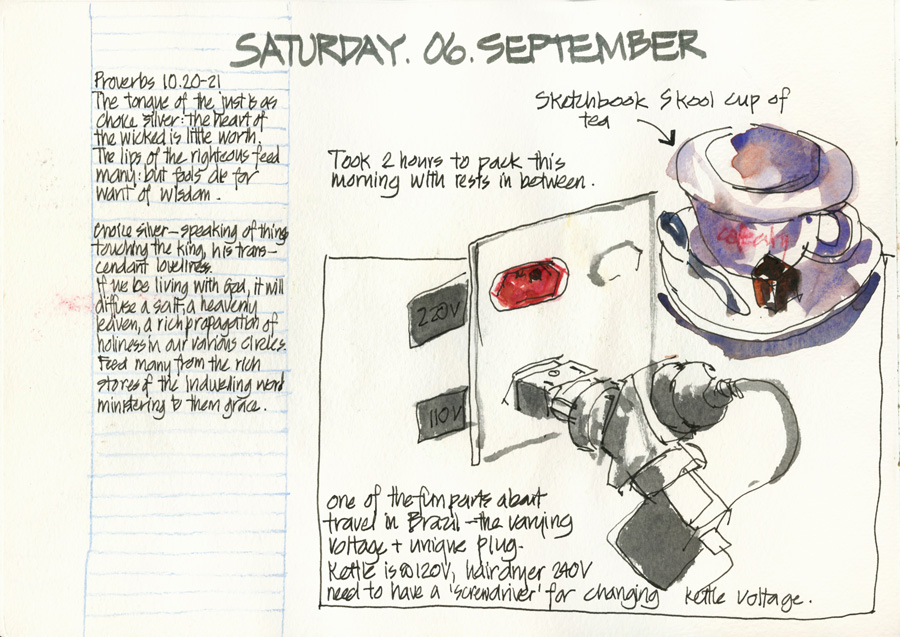 SATURDAY. 06. SEPTEMBER
Proverbs 10.20-21
The tongue of the just is as
choice silver: the heart of
the wicked is little worth
The lips of the righteous feed
many: but fools die for
want of wisdom.
choice silver - speaking of things
touching the king, his trans-
cendant loveliness.
If we be living with God, it will
diffuse a salt, a heavenly
leaven, a rich propagation of
holiness in our various circles.
Feed many from the rich
stores of the indwelling word
ministering to them grace.
Sketchbook Skool cup of
tea
Took 2 hours to pack this
morning with rests in between.
220V
110V
one of the fun parts about
travel in Brazil - the varying
voltage + unique plug.
Kettle is 120V, hairdryer 240V
need to have a 'screwdriver' for changing kettle voltage.